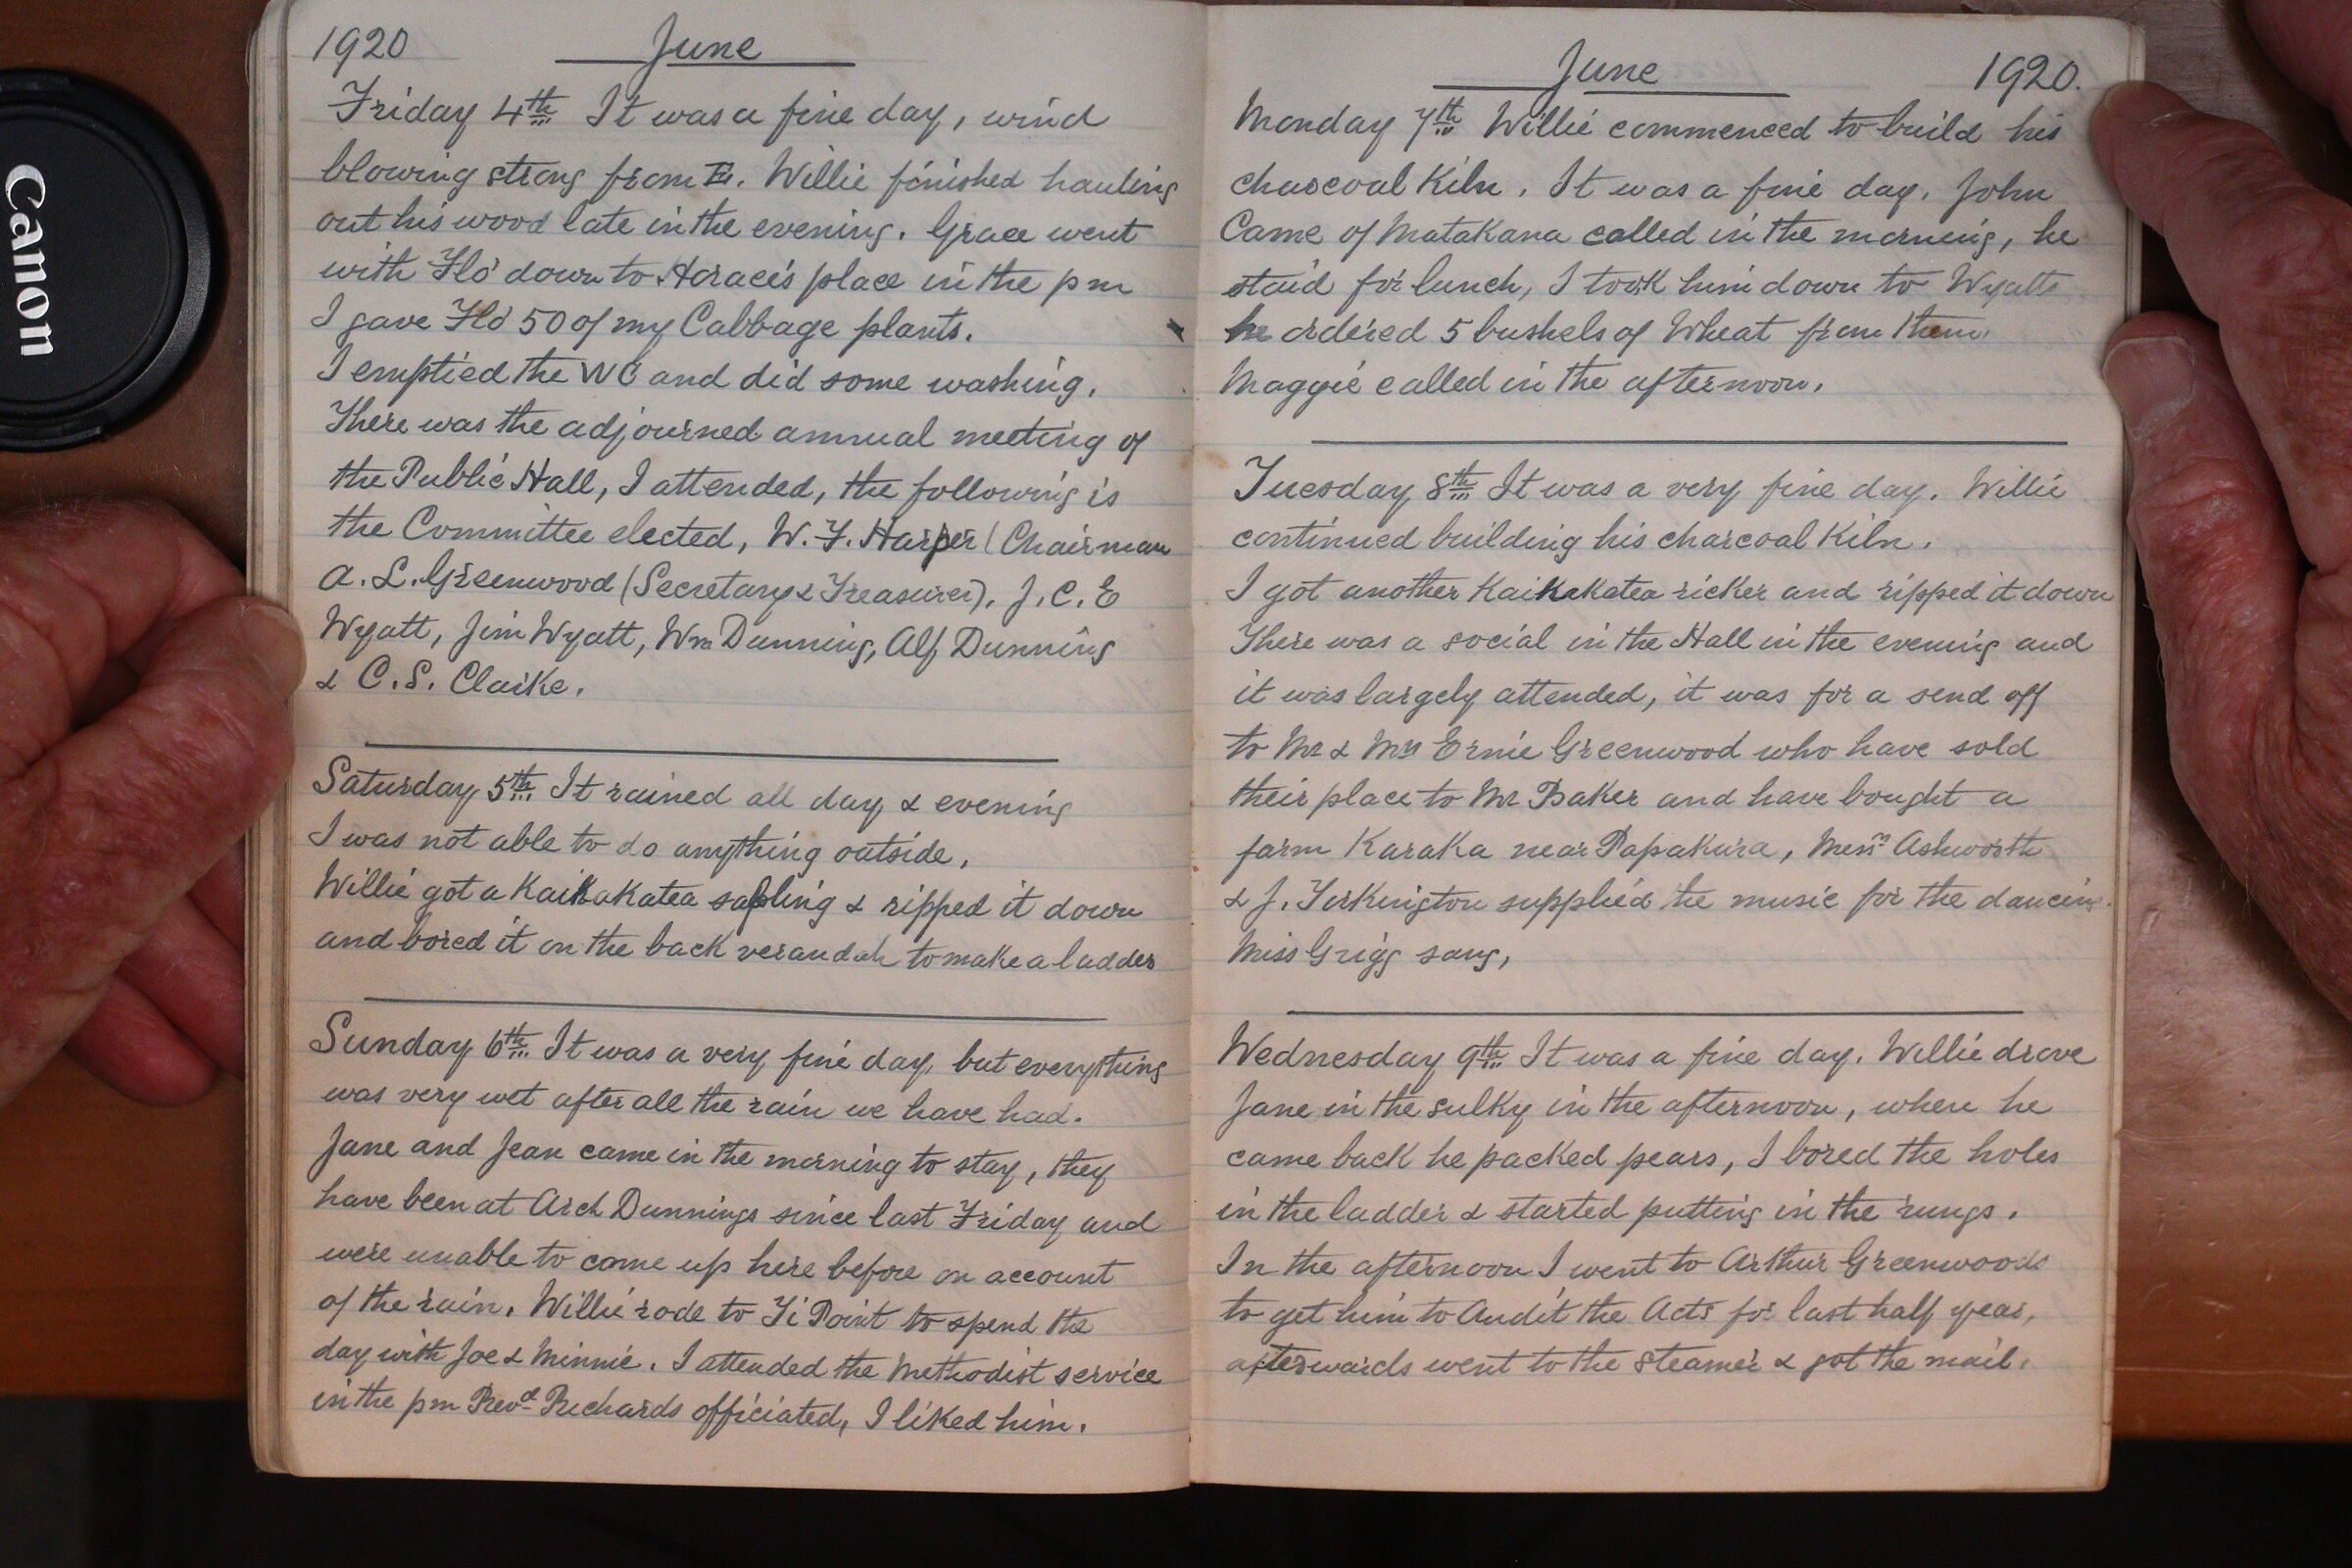 Canon
1920 June
Friday 4th It was a fine day, wind
blowing strong from E. Willie finished hauling
out his wood late in the evening. Grace went
with Flo down to Horace's place in the pm
I gave Flo 50 of my Cabbage plants.
I emptied the WC and did some washing.
There was the adjourned annual meeting of
the Public Hall, I attended, the following is
the Committee elected, W. F. Harper (Chairman
A. L. Greenwood (Secretary & Treasurer). J. C. E
Wyatt, Jim Wyatt, Wm Dunning, Alf Dunning
& C. S. Clarke.
Saturday 5th It rained all day & evening
I was not able to do anything outside.
Willie got a Kaikakatea sapling & ripped it down
and bored it on the back verandah to make a ladder
Sunday 6th It was a very fine day, but everything
was very wet after all the rain we have had.
Jane and Jean came in the morning to stay, they
have been at Arch Dunnings since last Friday and
were unable to come up here before on account
of the rain. Willie rode to Ti Point to spend the
day with Joe & Minnie. I attended the Methodist service
in the pm Revd Richards officiated, I liked him.
June 1920.
Monday 7th Willie commenced to build his
charcoal Kiln. It was a fine day. John
Came of Matakana called in the morning, he
staid for lunch, I took him down to Wyatts
he ordered 5 bushels of Wheat from them
Maggie called in the afternoon.
Tuesday 8th It was a very fine day. Willie
continued building his charcoal Kiln.
I got another Kaikakatea ricker and ripped it down
There was a social in the Hall in the evening and
it was largely attended, it was for a send off
to Mr & Mrs Ernie Greenwood who have sold
their place to Mr Baker and have bought a
farm Karaka near Papakura, Messrs Ashworth
& J. Torkington supplied the music for the dancing.
Miss Grigg sang,
Wednesday 9th It was a fine day. Willie drove
Jane in the sulky in the afternoon, when he
came back he packed pears, I bored the holes
in the ladder & started putting in the rungs.
In the afternoon I went to Arthur Greenwoods
to get him to Audit the Acts for last half year,
afterwards went to the steamer & got the mail.